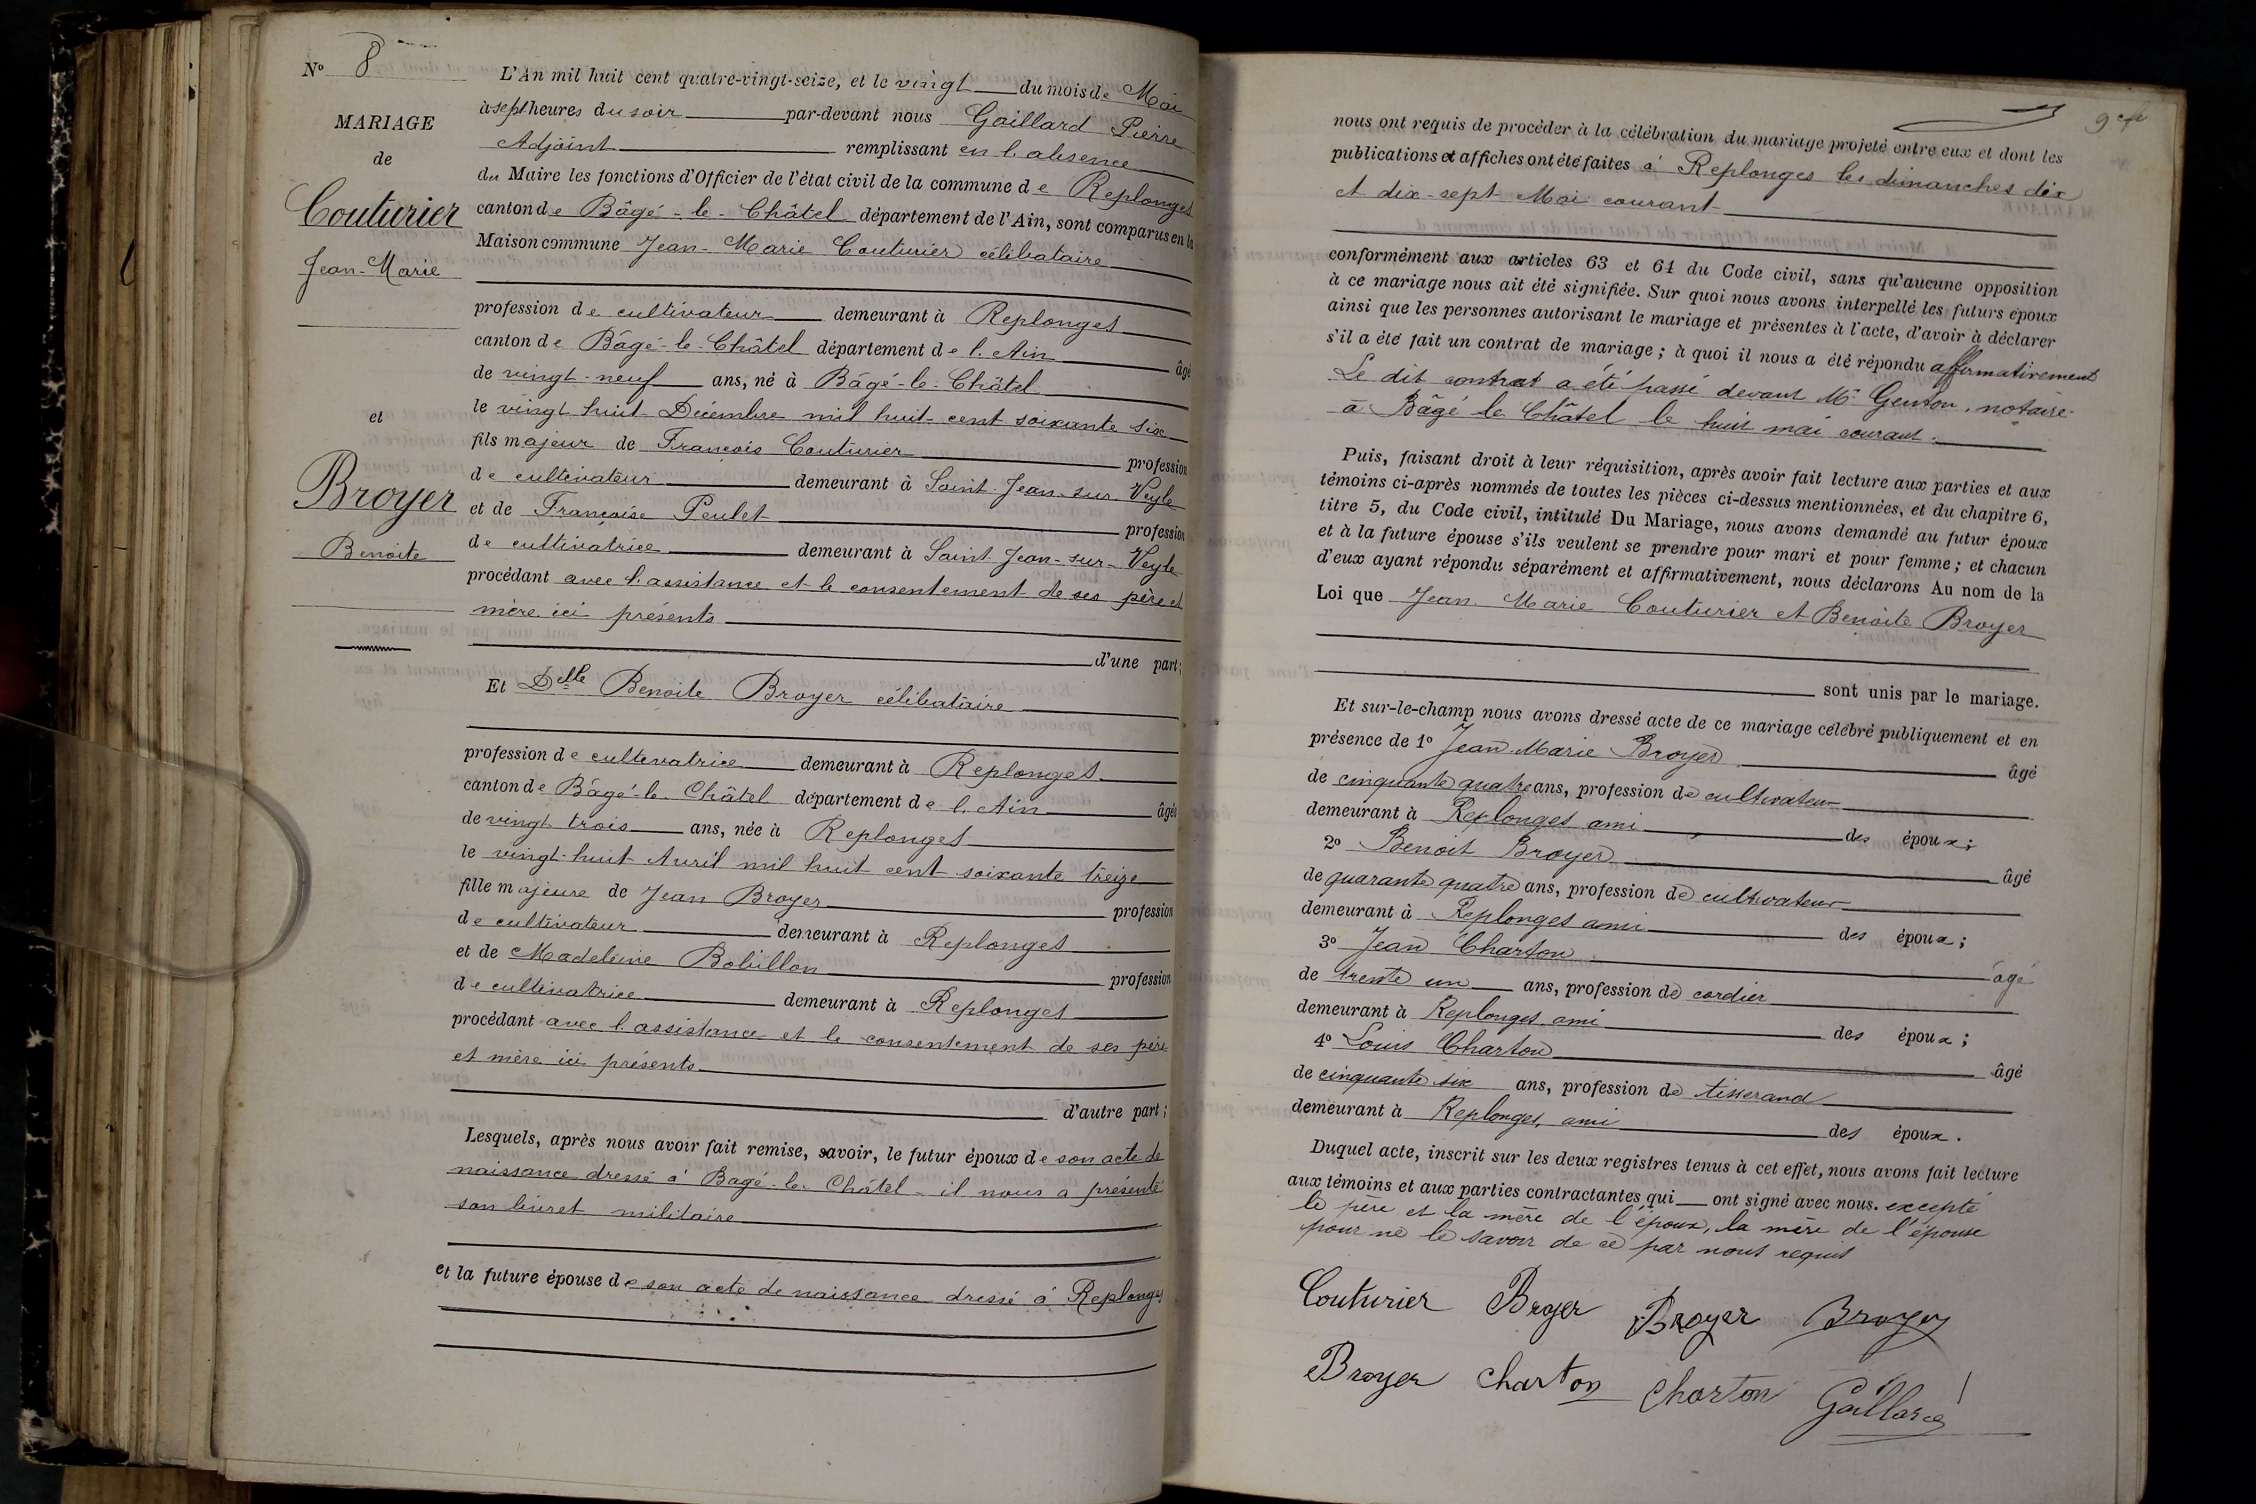 N° 8
MARIAGE
de
Couturier
Jean-Marie
et
Broyer
Benoite
L'An mil huit cent quatre-vingt-seize, et le vingt du mois de Mai
à sept heures du soir par-devant nous Gaillard Pierre
Adjoint remplissant en l'absence
du Maire les fonctions d'Officier de l'état civil de la commune de Replonges
canton de Bâgé-le-Châtel département de l'Ain, sont comparus en la
Maison commune Jean-Marie Couturier célibataire
profession de cultivateur demeurant à Replonges
canton de Bâgé-le-Châtel département de l'Ain âgé
de vingt-neuf ans, né à Bâgé-le-Châtel
le vingt huit Décembre mil huit cent soixante six
fils majeur de François Couturier profession
de cultivateur demeurant à Saint-Jean-sur-Veyle
et de Françoise Peulet profession
de cultivatrice demeurant à Saint-Jean-sur-Veyle
procédant avec l'assistance et le consentement de ses père et
mère ici présents
d'une part;
Et Delle Benoite Broyer célibataire
profession de cultivatrice demeurant à Replonges
canton de Bâgé-le-Châtel département de l'Ain âgée
de vingt trois ans, née à Replonges
le vingt-huit Avril mil huit cent soixante treize
fille majeure de Jean Broyer profession
de cultivateur demeurant à Replonges
et de Madeleine Bobillon profession
de cultivatrice demeurant à Replonges
procédant avec l'assistance et le consentement de ses père
et mère ici présents
d'autre part;
Lesquels, après nous avoir fait remise, savoir, le futur époux de son acte de
naissance dressé à Bagé-le-Châtel - il nous a présenté
son livret militaire
et la future épouse de son acte de naissance dressé à Replonges
nous ont requis de procéder à la célébration du mariage projeté entre eux et dont les
publications et affiches ont été faites à Replonges les dimanches dix
et dix-sept Mai courant
conformément aux articles 63 et 64 du Code civil, sans qu'aucune opposition
à ce mariage nous ait été signifiée. Sur quoi nous avons interpellé les futurs époux
ainsi que les personnes autorisant le mariage et présentes à l'acte, d'avoir à déclarer
s'il a été fait un contrat de mariage; à quoi il nous a été répondu affirmativement
Le dit contrat a été passé devant Me Genton, notaire
à Bâgé le Châtel le huit mai courant.
Puis, faisant droit à leur réquisition, après avoir fait lecture aux parties et aux
témoins ci-après nommés de toutes les pièces ci-dessus mentionnées, et du chapitre 6,
titre 5, du Code civil, intitulé Du Mariage, nous avons demandé au futur époux
et à la future épouse s'ils veulent se prendre pour mari et pour femme; et chacun
d'eux ayant répondu séparément et affirmativement, nous déclarons Au nom de la
Loi que Jean Marie Couturier et Benoite Broyer
sont unis par le mariage.
Et sur-le-champ nous avons dressé acte de ce mariage célébré publiquement et en
présence de 1° Jean-Marie Broyer âgé
de cinquante quatre ans, profession de cultivateur
demeurant à Replonges ami des époux;
2° Benoit Broyer âgé
de quarante quatre ans, profession de cultivateur
demeurant à Replonges ami des époux;
3° Jean Charton âgé
de trente un ans, profession de cordier
demeurant à Replonges ami des époux;
4° Louis Charton âgé
de cinquante six ans, profession de tisserand
demeurant à Replonges, ami des époux.
Duquel acte, inscrit sur les deux registres tenus à cet effet, nous avons fait lecture
aux témoins et aux parties contractantes qui ont signé avec nous. excepté
le père et la mère de l'époux, la mère de l'épouse
pour ne le savoir de ce par nous requis
Couturier Broyer Broyer Broyer
Broyer Charton Charton Gaillard